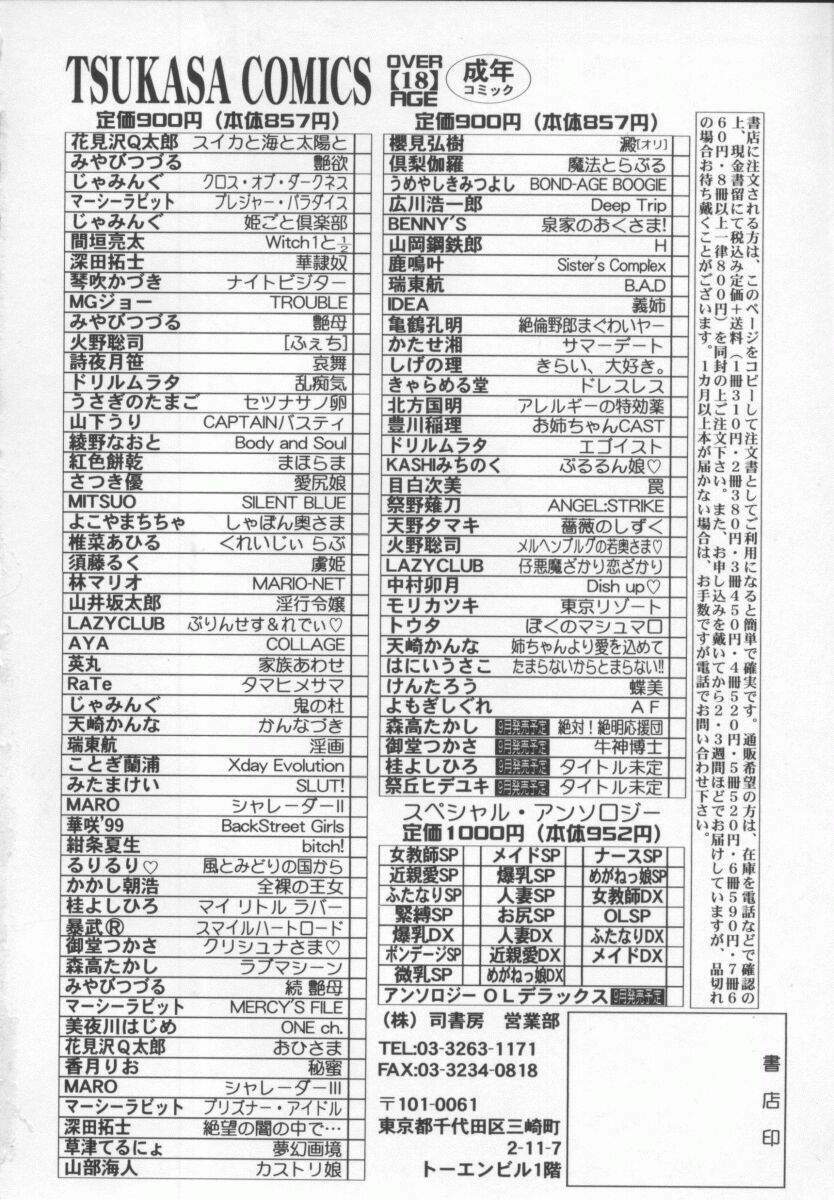 TSUKASA COMICS
OVER
【18】
AGE
成年
コミック
定価900円（本体857円）
花見沢Q太郎 スイカと海と太陽と
みやびつづる 艶欲
じゃみんぐ クロス・オブ・ダークネス
マーシーラビット プレジャー・パラダイス
じゃみんぐ 姫ごと倶楽部
間垣亮太 Witch1と½
深田拓士 華隷奴
琴吹かづき ナイトビジター
MGジョー TROUBLE
みやびつづる 艶母
火野聡司 [ふぇち]
詩夜月笹 哀舞
ドリルムラタ 乱痴気
うさぎのたまご セツナサノ卵
山下うり CAPTAINバスティ
綾野なおと Body and Soul
紅色餅乾 まほらま
さつき優 愛尻娘
MITSUO SILENT BLUE
よこやまちちゃ しゃぼん奥さま
椎菜あひる くれいじぃ らぶ
須藤るく 虜姫
林マリオ MARIO-NET
山井坂太郎 淫行令嬢
LAZYCLUB ぷりんせす&れでぃ♡
AYA COLLAGE
英丸 家族あわせ
RaTe タマヒメサマ
じゃみんぐ 鬼の杜
天崎かんな かんなづき
瑞東航 淫画
ことぎ蘭浦 Xday Evolution
みたまけい SLUT!
MARO シャレーダーII
華咲'99 BackStreet Girls
紺条夏生 bitch!
るりるり♡ 風とみどりの国から
かかし朝浩 全裸の王女
桂よしひろ マイ リトル ラバー
暴武Ⓡ スマイルハートロード
御堂つかさ クリシュナさま♡
森高たかし ラブマシーン
みやびつづる 続 艶母
マーシーラビット MERCY'S FILE
美夜川はじめ ONE ch.
花見沢Q太郎 おひさま
香月りお 秘蜜
MARO シャレーダーIII
マーシーラビット プリズナー・アイドル
深田拓士 絶望の闇の中で…
草津てるにょ 夢幻画境
山部海人 カストリ娘
定価900円（本体857円）
櫻見弘樹 澱[オリ]
倶梨伽羅 魔法とらぶる
うめやしきみつよし BOND-AGE BOOGIE
広川浩一郎 Deep Trip
BENNY'S 泉家のおくさま!
山岡鋼鉄郎 H
鹿鳴叶 Sister's Complex
瑞東航 B.A.D
IDEA 義姉
亀鶴孔明 絶倫野郎まぐわいヤー
かたせ湘 サマーデート
しげの理 きらい、大好き。
きゃらめる堂 ドレスレス
北方国明 アレルギーの特効薬
豊川稲理 お姉ちゃんCAST
ドリルムラタ エゴイスト
KASHIみちのく ぷるるん娘♡
目白次美 罠
祭野薙刀 ANGEL:STRIKE
天野タマキ 薔薇のしずく
火野聡司 メルヘンブルグの若奥さま♡
LAZYCLUB 仔悪魔ざかり恋ざかり
中村卯月 Dish up♡
モリカツキ 東京リゾート
トウタ ぼくのマシュマロ
天崎かんな 姉ちゃんより愛を込めて
はにいうさこ たまらないからとまらない!!
けんたろう 蝶美
よもぎしぐれ A F
森高たかし 9月発売予定 絶対！絶明応援団
御堂つかさ 9月発売予定 牛神博士
桂よしひろ 9月発売予定 タイトル未定
祭丘ヒデユキ 9月発売予定 タイトル未定
スペシャル・アンソロジー
定価1000円（本体952円）
女教師SP メイドSP ナースSP
近親愛SP 爆乳SP めがねっ娘SP
ふたなりSP 人妻SP 女教師DX
緊縛SP お尻SP OLSP
爆乳DX 人妻DX ふたなりDX
ボンデージSP 近親愛DX メイドDX
微乳SP めがねっ娘DX
アンソロジー OLデラックス 9月発売予定
（株）司書房 営業部
TEL:03-3263-1171
FAX:03-3234-0818
〒101-0061
東京都千代田区三崎町
2-11-7
トーエンビル1階
書店印
書店に注文される方は、このページをコピーして注文書としてご利用になると簡単で確実です。通販希望の方は、在庫を電話などで確認の
上、現金書留にて税込み定価＋送料（1冊310円・2冊380円・3冊450円・4冊520円・5冊520円・6冊590円・7冊6
60円・8冊以上一律800円）を同封の上ご注文下さい。また、お申し込みを戴いてから2・3週間ほどでお届けしていますが、品切れ
の場合お待ち戴くことがございます。1カ月以上本が届かない場合は、お手数ですが電話でお問い合わせ下さい。